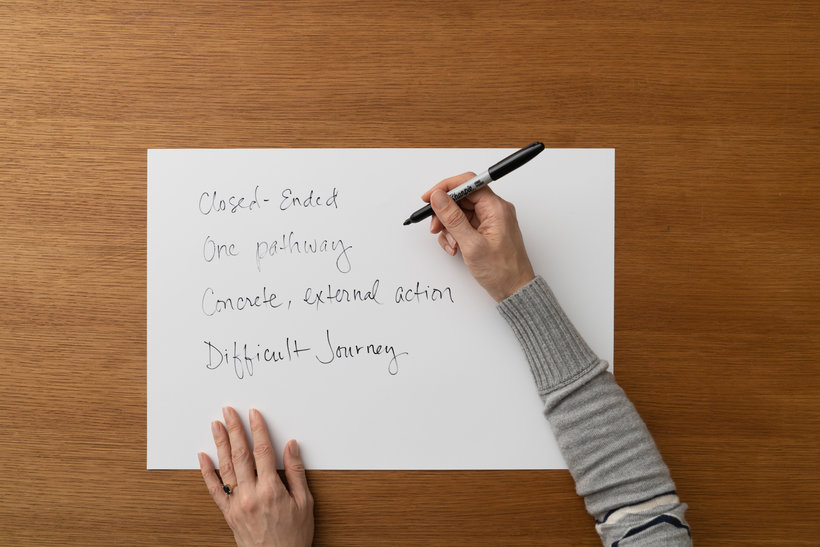 Closed-Ended
One pathway
Concrete, external action
Difficult Journey
Sharpie